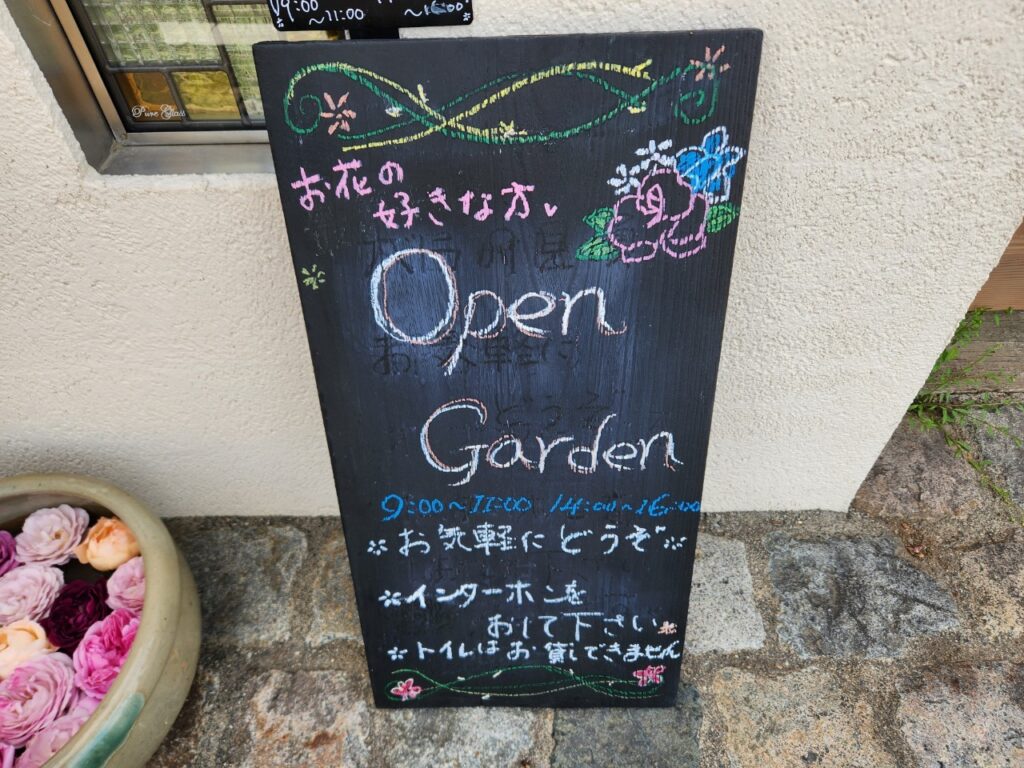 9:00
~11:00
~16:00
Pure Glass
お花の
好きな方
Open
Garden
9:00~11:00 14:00~16:00
お気軽に どうぞ
※インターホンを
おして下さい
※トイレはお貸しできません